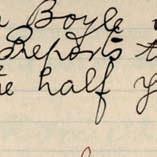 Boyle
Reports
half